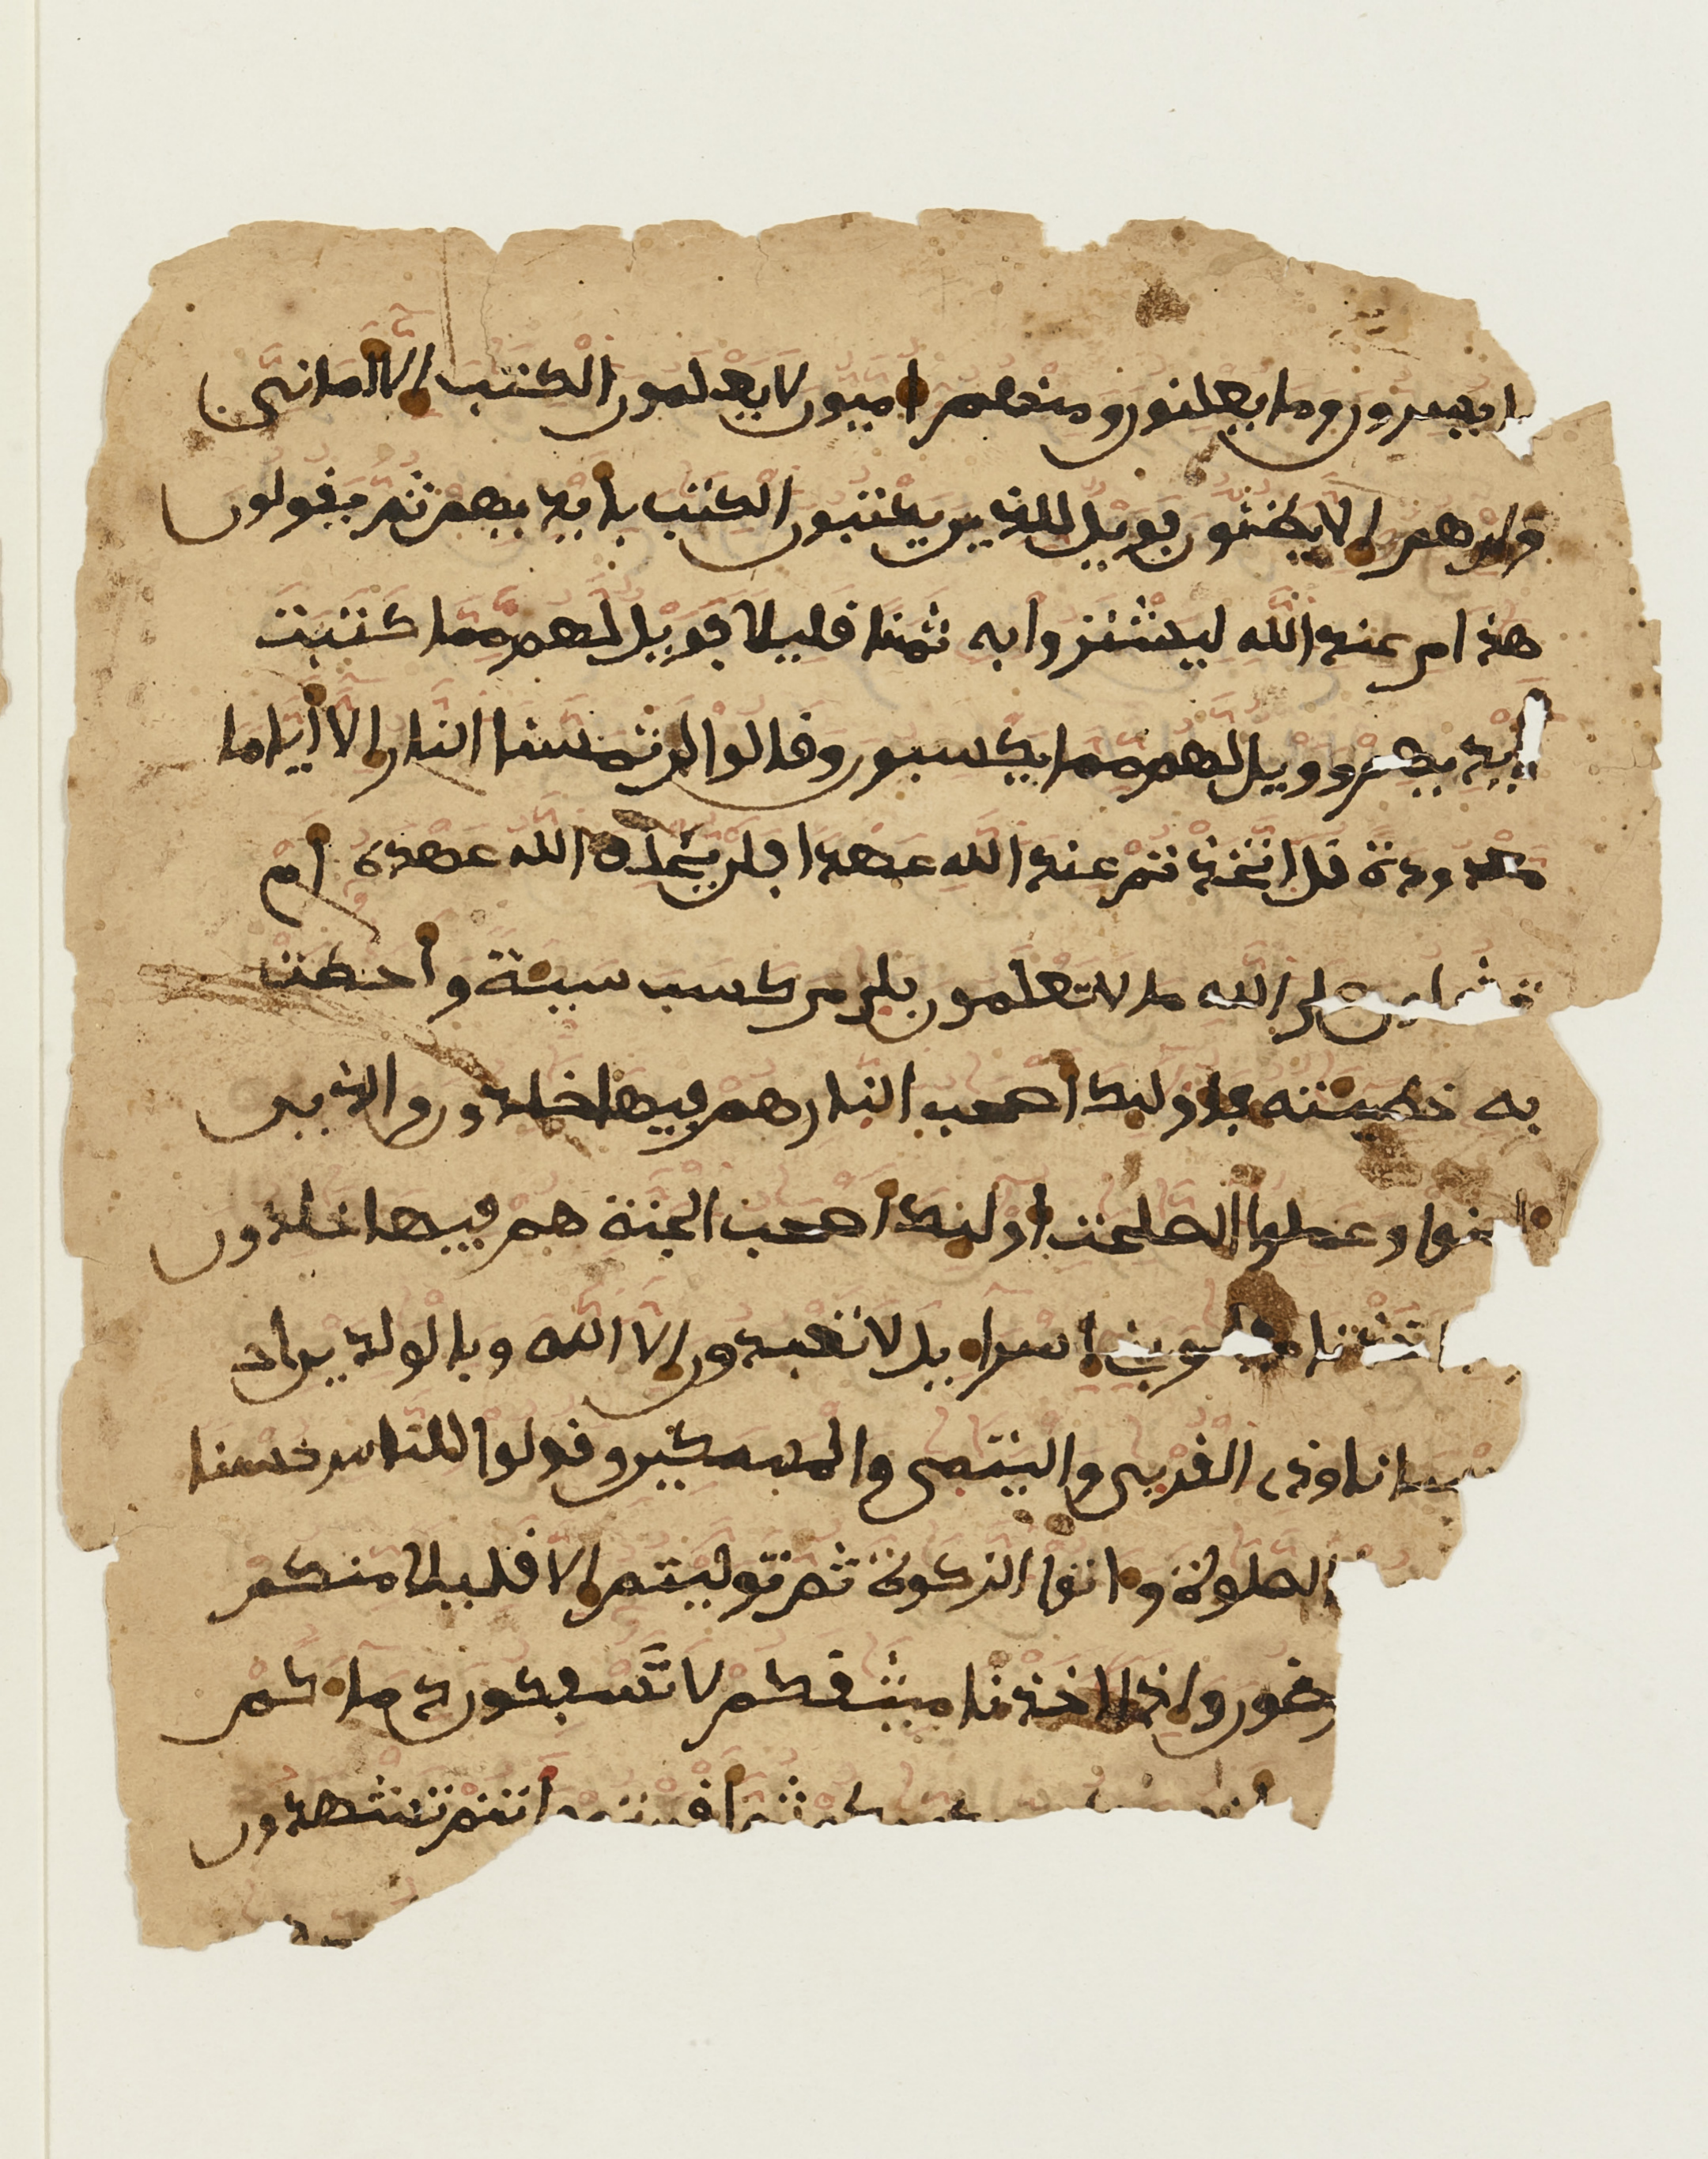 ما يسرون وما يعلنون ومنهم اميون لا يعلمون الكتب الا امانى
وان هم الا يظنون فويل للذين يكتبون الكتب بايديهم ثم يقولون
هذا من عند الله ليشتروا به ثمنا قليلا فويل لهم مما كتبت
ايديهم وويل لهم مما يكسبون وقالوا لن تمسنا النار الا اياما
معدودة قل اتخذتم عند الله عهدا فلن يخلف الله عهده ام
تقولون على الله ما لا تعلمون بلى من كسب سيئة واحطت
به خطيئته فاولئك اصحب النار هم فيها خلدون والذين
امنوا وعملوا الصلحت اولئك اصحب الجنة هم فيها خلدون
اخذنا ميثق بنى اسراءيل لا تعبدون الا الله وبالولدين احـ
ـسانا وذى القربى واليتمى والمسكين وقولوا للناس حسنا
الصلوة واتوا الزكوة ثم توليتم الا قليلا منكم
ـرضون واذ اخذنا ميثقكم لا تسفكون دماءكم
ثم اقررتم وانتم تشهدون